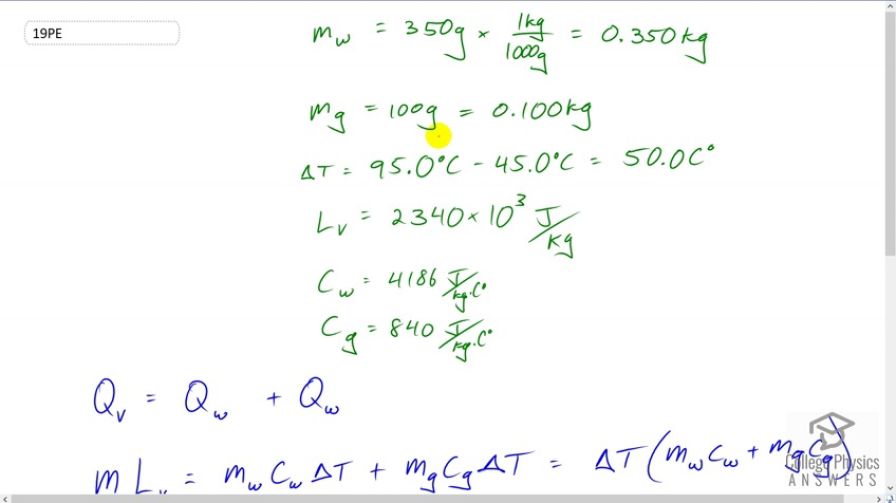 19PE
m_w = 350g × 1kg/1000g = 0.350kg
m_g = 100g = 0.100kg
ΔT = 95.0°C - 45.0°C = 50.0C°
L_v = 2340 × 10³ J/kg
C_w = 4186 J/kg·C°
C_g = 840 J/kg·C°
Q_v = Q_w + Q_w
m L_v = m_w C_w ΔT + m_g C_g ΔT = ΔT (m_w C_w + m_g C_g)
College Physics
ANSWERS